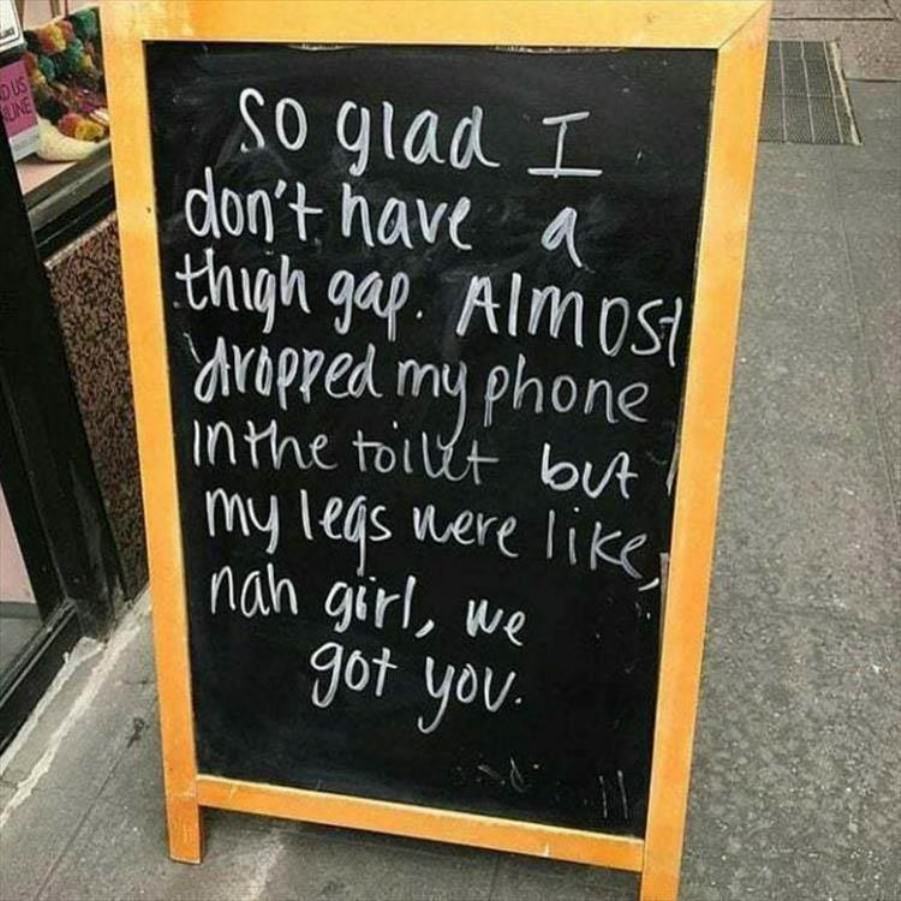 so glad I
don't have a
thigh gap. Almost
dropped my phone
in the toilet but
my legs were like,
nah girl, we
got you.
D US
LINE